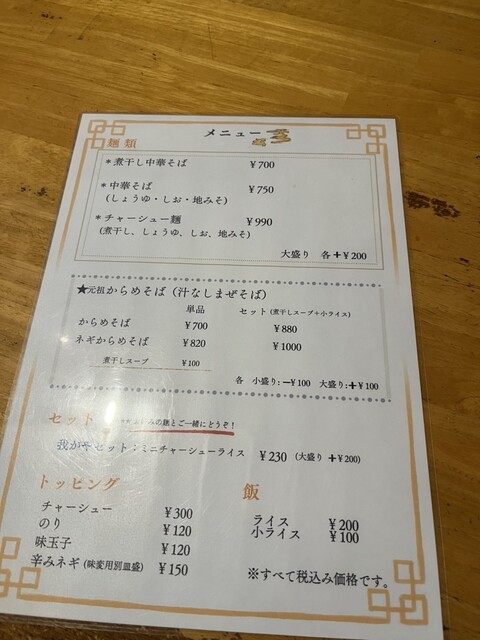 メニュー
麺類
*煮干し中華そば ¥700
*中華そば ¥750
(しょうゆ・しお・地みそ)
*チャーシュー麺 ¥990
(煮干し、しょうゆ、しお、地みそ)
大盛り 各+¥200
★元祖からめそば(汁なしまぜそば)
単品 セット(煮干しスープ+小ライス)
からめそば ¥700 ¥880
ネギからめそば ¥820 ¥1000
煮干しスープ ¥100
各 小盛り:ー¥100 大盛り:+¥100
セット
みの麺とご一緒にどうぞ!
我が セット:ミニチャーシューライス ¥230 (大盛り +¥200)
トッピング
チャーシュー ¥300
のり ¥120
味玉子 ¥120
辛みネギ(味変用別皿盛) ¥150
飯
ライス ¥200
小ライス ¥100
※すべて税込み価格です。